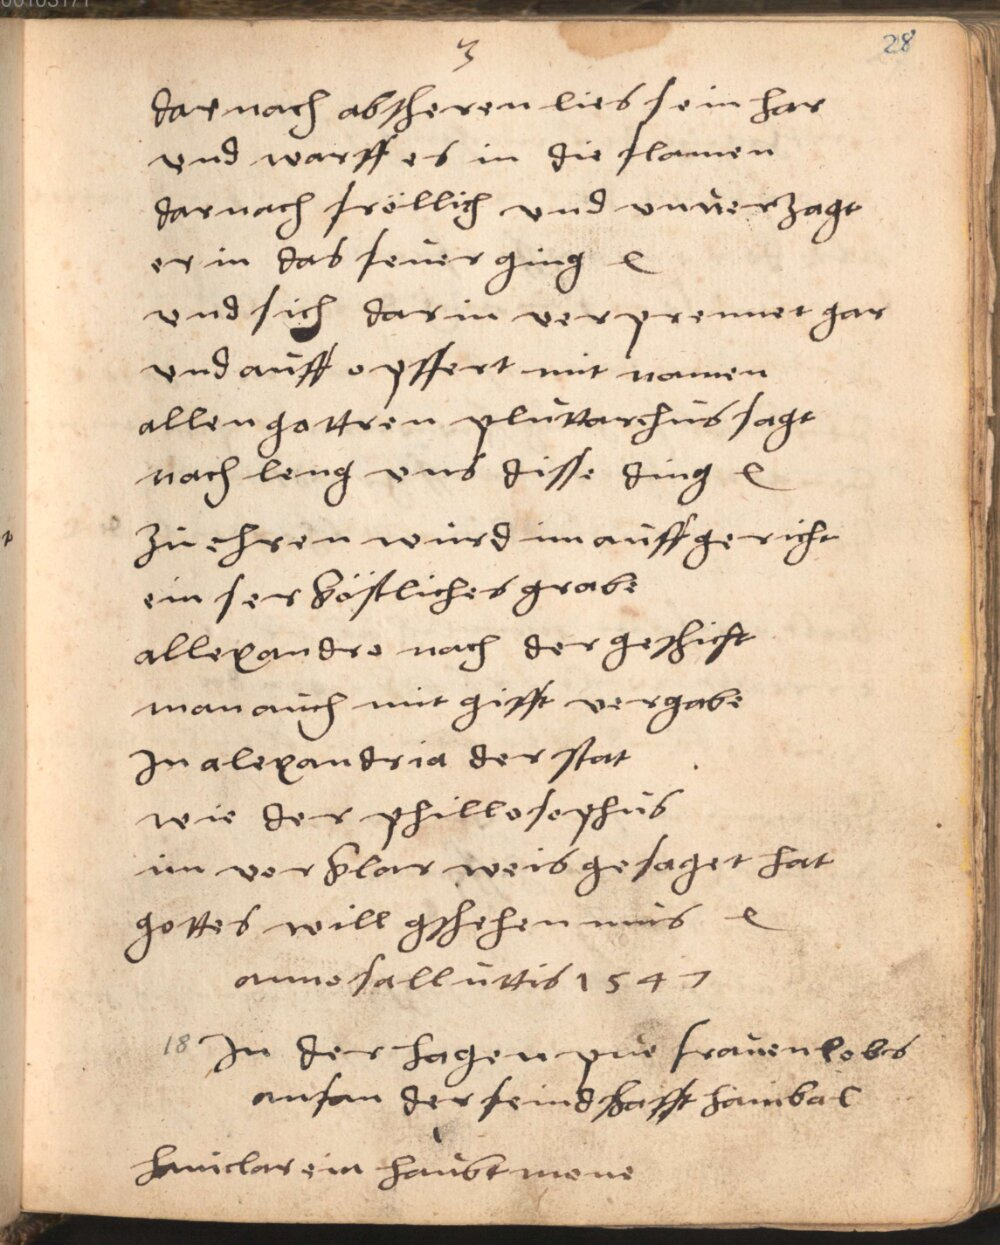 3
28
darnach abscheren lies sein har
vnd warff es in die flamen
darnach fröllich vnd vnuerzagt
er in das feuer ging
vnd sich darin verprennet gar
vnd auff opffert mit namen
allen gottren pluttarchus sagt
nach leng vns disse ding
zu ehren wurd im auff gericht
ein ser köstliches grabe
allexandro nach der geschicht
man auch mit gifft vergabe
In alexandria der stat
wie der phillosophus
im vor klar weis gesaget hat
gottes will gschehen mus
anno salluttis 1547
18 In der hagen plüe frauenlobs
anfan der feindschafft hanibal
hamilcar ein haubt mone